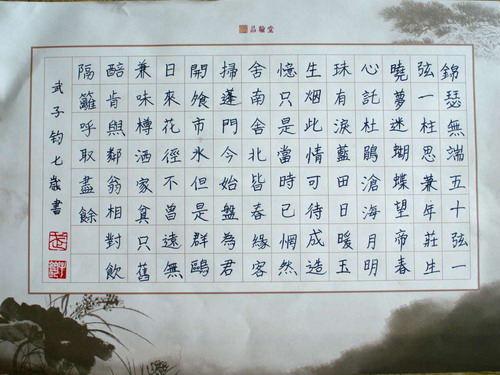 品翰堂
錦瑟無端五十弦一
弦一柱思華年莊生
曉夢迷蝴蝶望帝春
心託杜鵑滄海月明
珠有淚藍田日暖玉
生烟此情可待成造
憶只是當時已惘然
舍南舍北皆春緣客
掃蓬門今始盤為君
開飧市水但是群鷗
日來花徑不曾遠無
兼味樽酒家貧只舊
醅肯與鄰翁相對飲
隔籬呼取盡餘
武子鈞七歲書